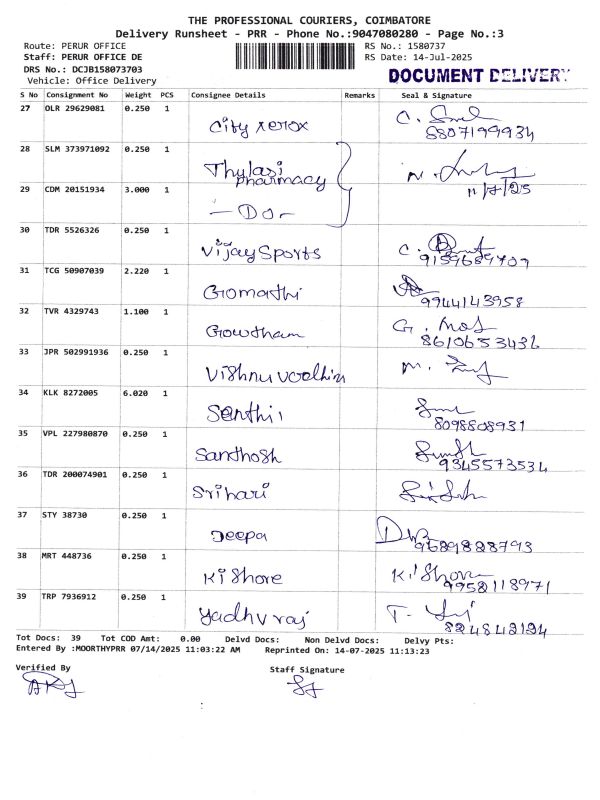 THE PROFESSIONAL COURIERS, COIMBATORE
Delivery Runsheet - PRR - Phone No.:9047080280 - Page No.:3
Route: PERUR OFFICE
RS No.: 1580737
Staff: PERUR OFFICE DE
RS Date: 14-Jul-2025
DRS No.: DCJB158073703
Vehicle: Office Delivery
DOCUMENT DELIVERY
S No Consignment No Weight PCS Consignee Details Remarks Seal & Signature
27 OLR 29629081 0.250 1 City xerox
8807199934
28 SLM 373971092 0.250 1 Thylasi pharmacy
11/7/25
29 CDM 20151934 3.000 1 - Do -
30 TDR 5526326 0.250 1 Vijay Sports C.
9159689709
31 TCG 50907039 2.220 1 Gomathi
9944143958
32 TVR 4329743 1.100 1 Gowtham G.
8610653432
33 JPR 502991936 0.250 1 M.
34 KLK 8272005 6.020 1 Senthil
8098808931
35 VPL 227980870 0.250 1 Santhosh
9345573534
36 TDR 200074901 0.250 1 Srihari
37 STY 38730 0.250 1 Deepa
9689828793
38 MRT 448736 0.250 1 Kishore Kishore
9952118971
39 TRP 7936912 0.250 1 Yadhuraj T.
Tot Docs: 39 Tot COD Amt: 0.00 Delvd Docs: Non Delvd Docs: Delvy Pts:
Entered By :MOORTHYPRR 07/14/2025 11:03:22 AM Reprinted On: 14-07-2025 11:13:23
Verified By Staff Signature